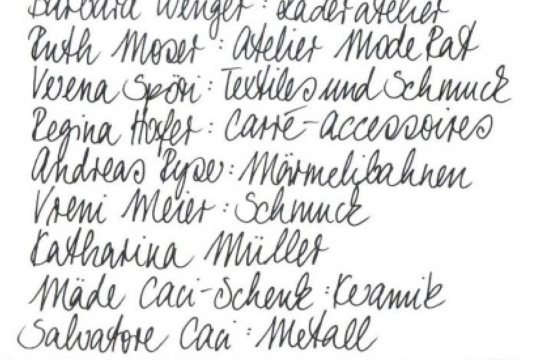 Barbara Wenger: Läderatelier
Ruth Moser: Atelier ModeRat
Verena Spöri: Textiles und Schmuck
Regina Hofer: Carré-accessoires
Andreas Ryser: Märmelibahnen
Vreni Meier: Schmuck
Katharina Müller
Mäde Caci-Schenk: Keramik
Salvatore Caci: Metall